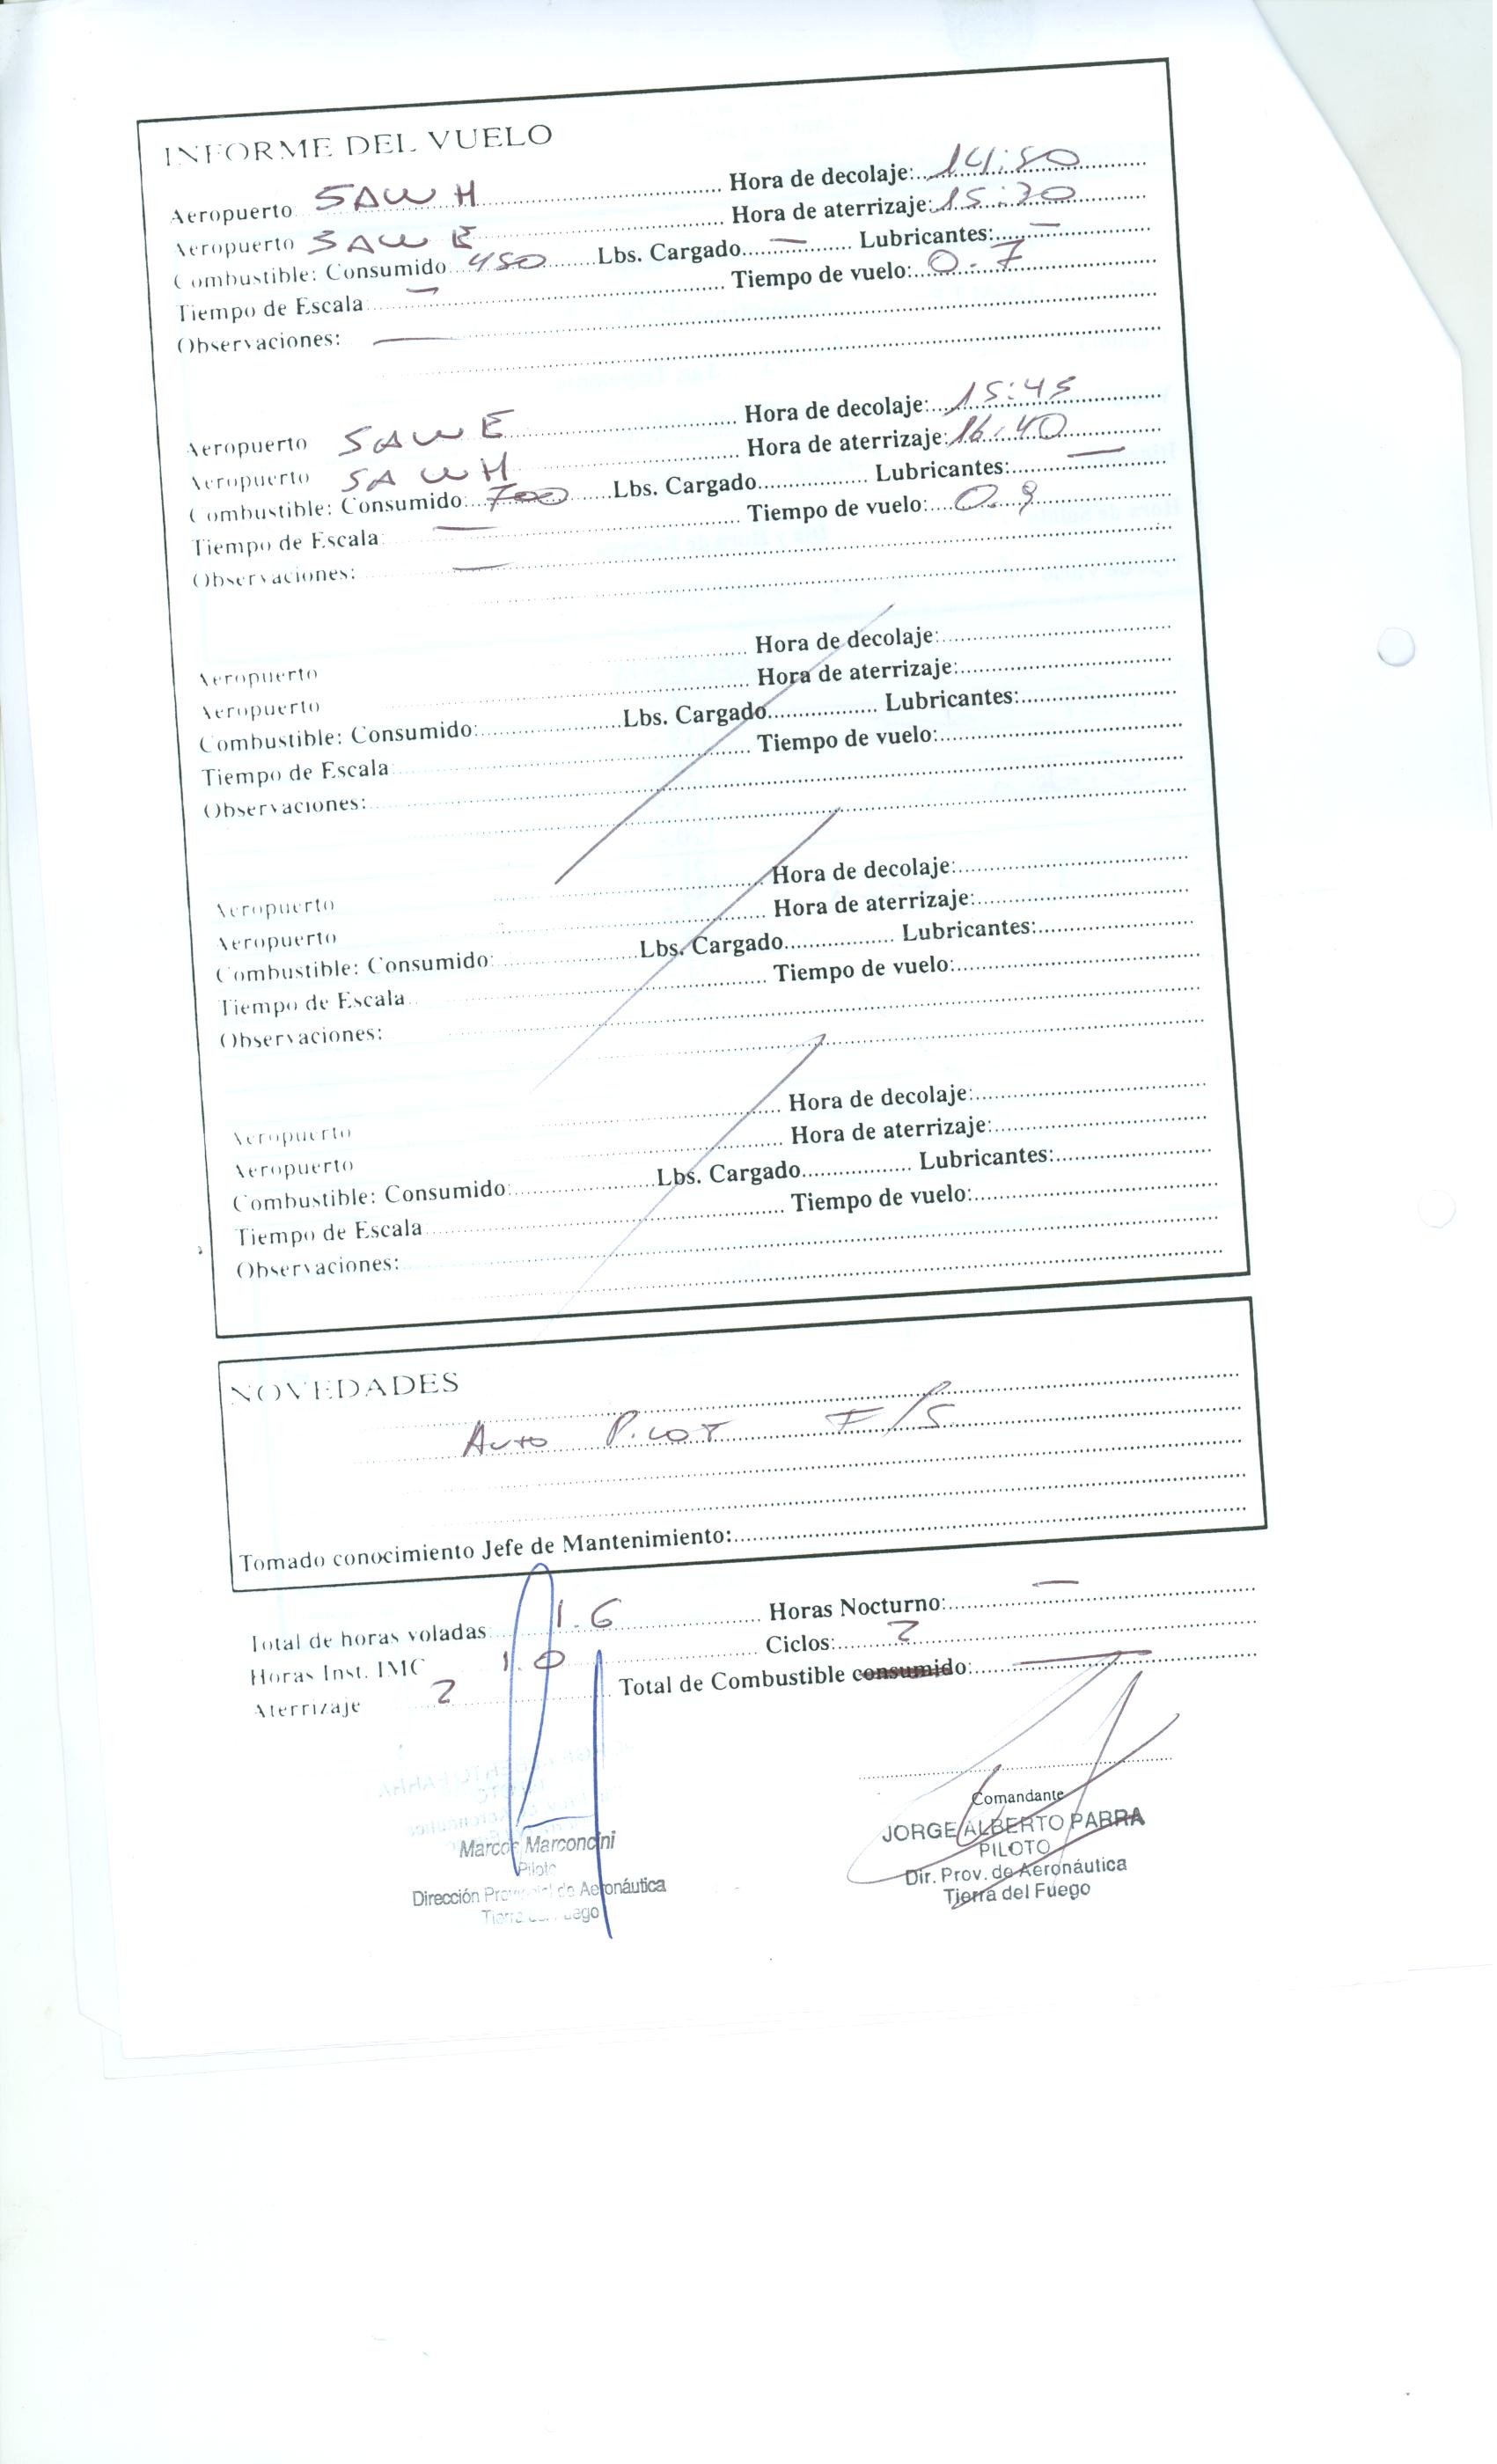 INFORME DEL VUELO
Aeropuerto SAWH Hora de decolaje: 14:50
Aeropuerto SAWE Hora de aterrizaje: 15:30
Combustible: Consumido 450 Lbs. Cargado — Lubricantes: —
Tiempo de Escala — Tiempo de vuelo: 0.7
Observaciones: —
Aeropuerto SAWE Hora de decolaje: 15:45
Aeropuerto SAWH Hora de aterrizaje: 16:40
Combustible: Consumido: 700 Lbs. Cargado Lubricantes: —
Tiempo de Escala — Tiempo de vuelo: 0.9
Observaciones: —
Aeropuerto Hora de decolaje:
Aeropuerto Hora de aterrizaje:
Combustible: Consumido: Lbs. Cargado Lubricantes:
Tiempo de Escala Tiempo de vuelo:
Observaciones:
Aeropuerto Hora de decolaje:
Aeropuerto Hora de aterrizaje:
Combustible: Consumido: Lbs. Cargado Lubricantes:
Tiempo de Escala Tiempo de vuelo:
Observaciones:
Aeropuerto Hora de decolaje:
Aeropuerto Hora de aterrizaje:
Combustible: Consumido: Lbs. Cargado Lubricantes:
Tiempo de Escala Tiempo de vuelo:
Observaciones:
NOVEDADES
AUTO PILOT F/S
Tomado conocimiento Jefe de Mantenimiento:
Total de horas voladas 1.6 Horas Nocturno: —
Horas Inst. IMC 1.0 Ciclos: 2
Aterrizaje 2 Total de Combustible consumido: —
Comandante
Marcos Marconcini
Piloto
Dirección Provincial de Aeronáutica
Tierra del Fuego
JORGE ALBERTO PARRA
PILOTO
Dir. Prov. de Aeronáutica
Tierra del Fuego